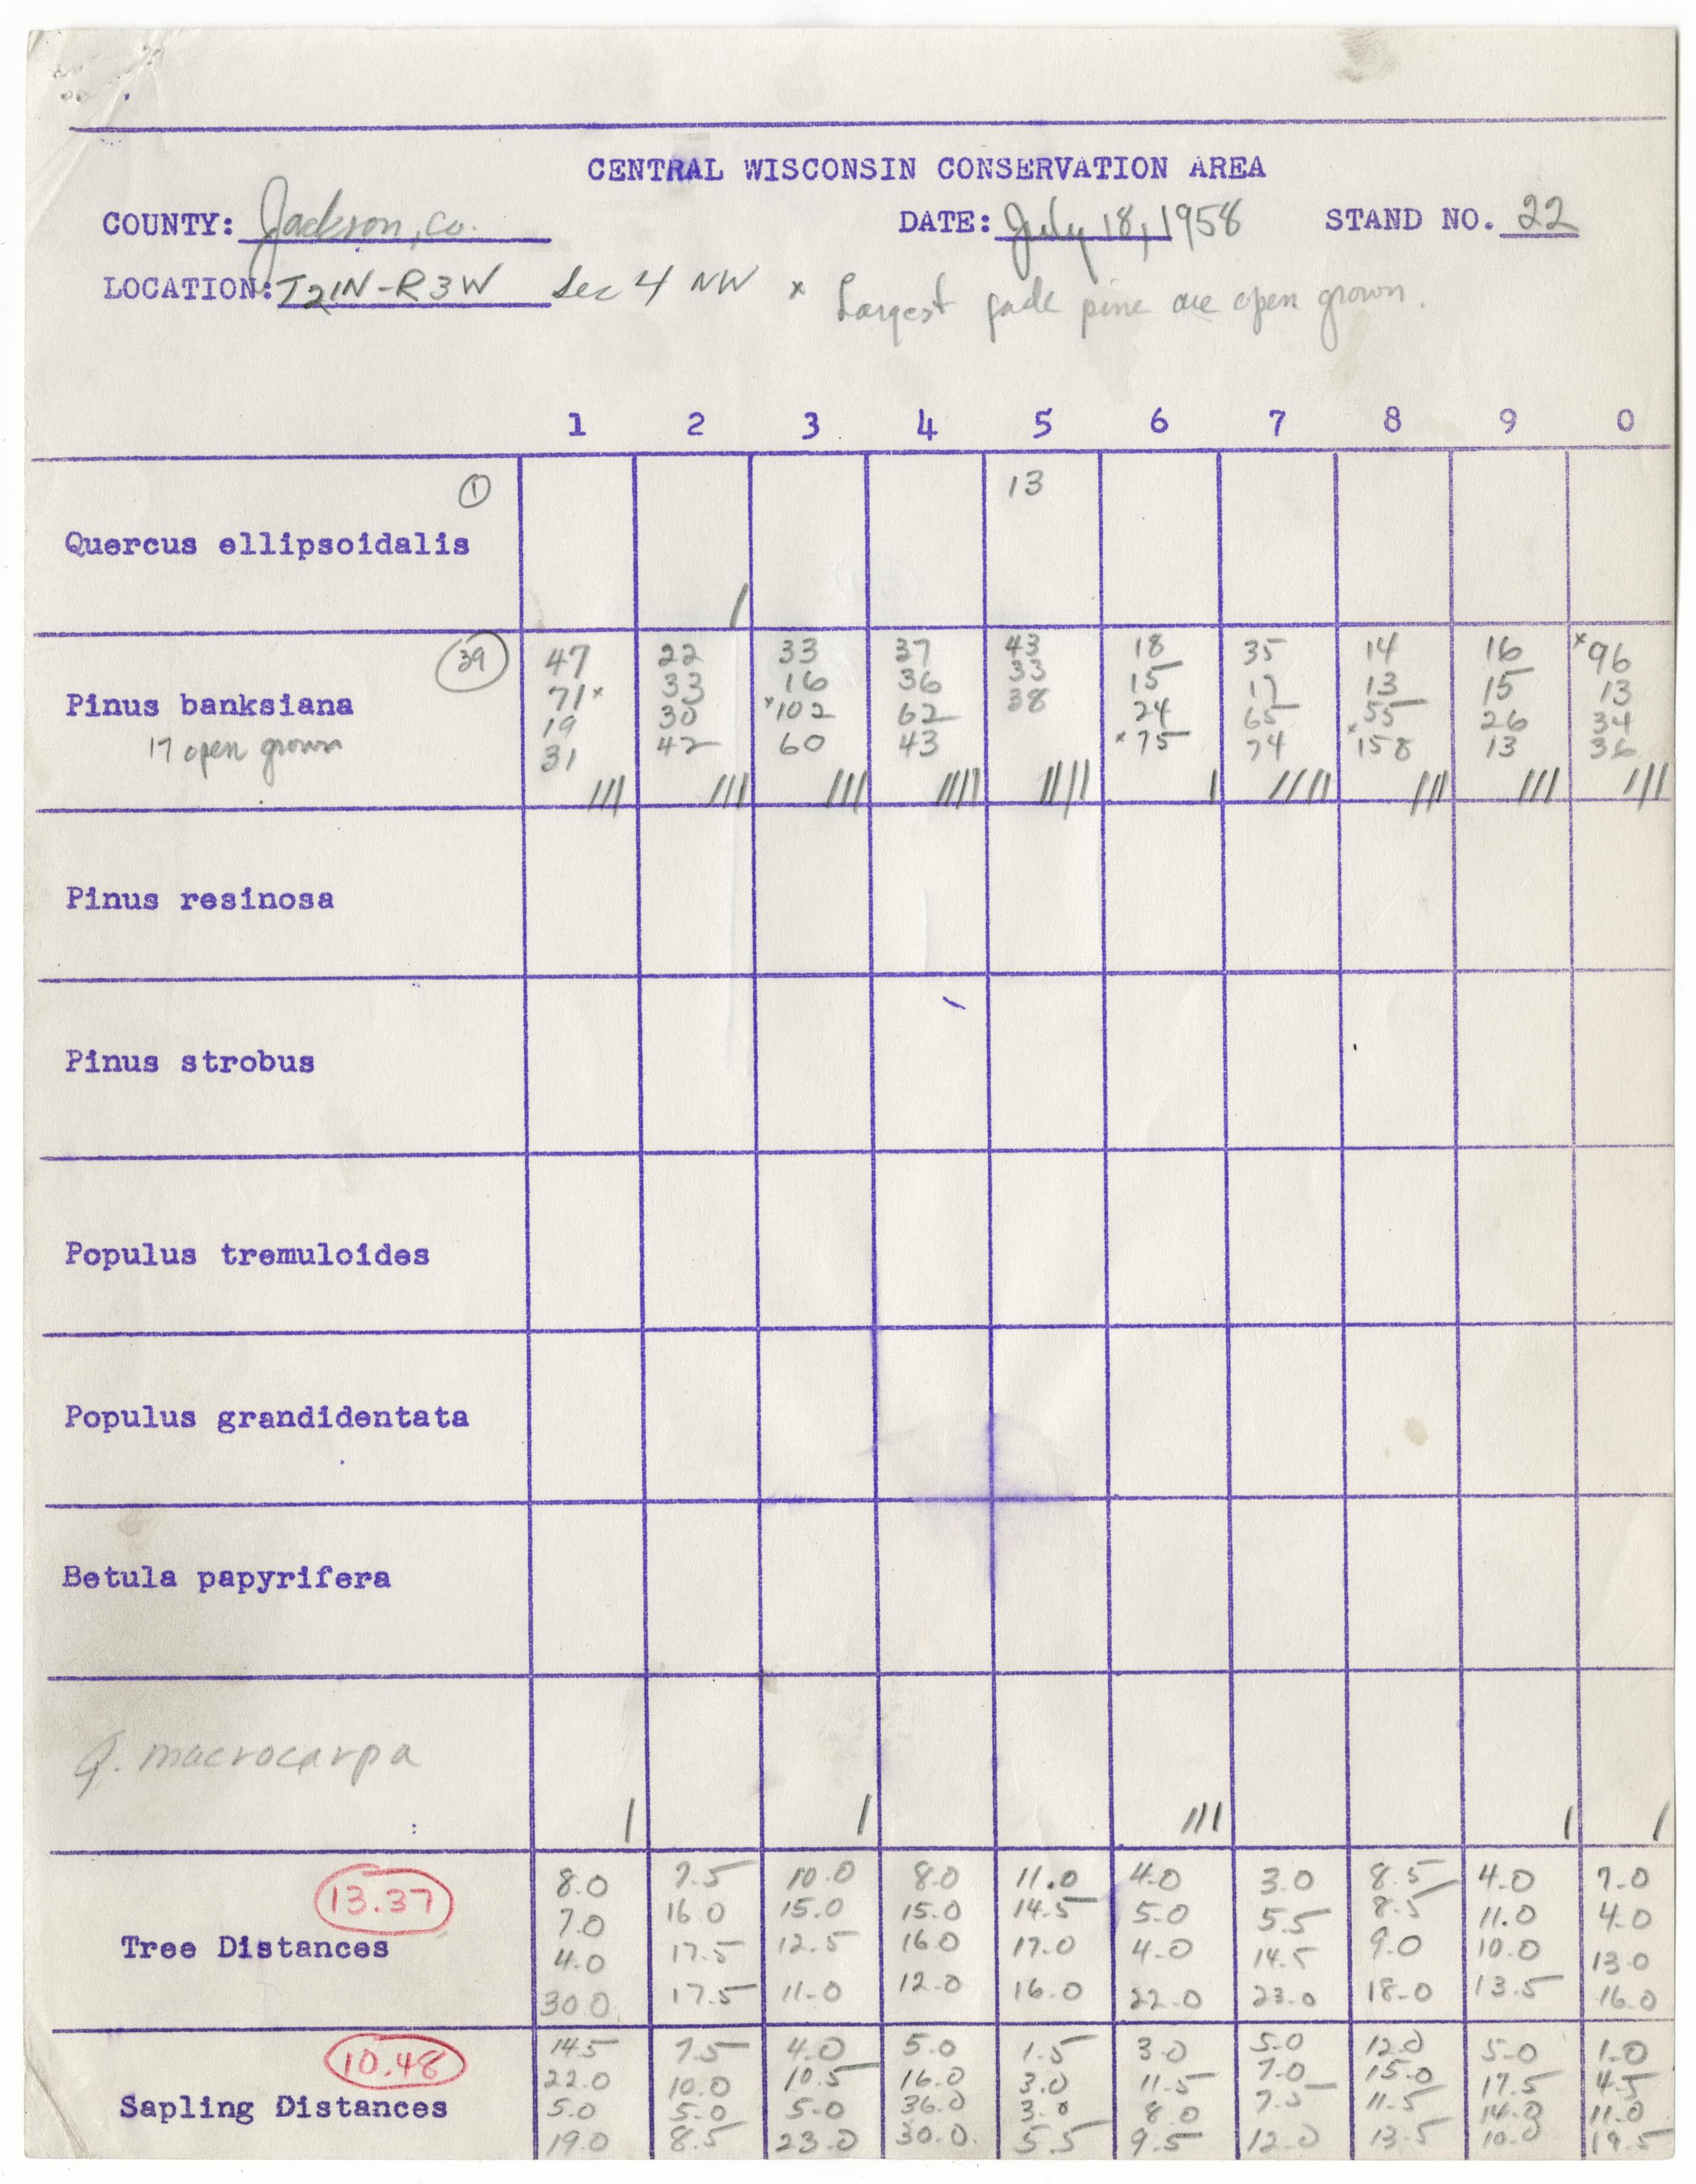 CENTRAL WISCONSIN CONSERVATION AREA
COUNTY: Jackson, Co. DATE: July 18, 1958 STAND NO. 22
LOCATION: T21N-R3W Sec 4 NW x Largest jack pine are open grown.
1 2 3 4 5 6 7 8 9 0
1 13
Quercus ellipsoidalis
/
39 47 22 33 37 43 18 35 14 16 x96
Pinus banksiana 71x 33 16 36 33 15 17 13 15 13
19 30 x102 62 38 24 65 55 26 34
17 open grown 31 42 60 43 x75 74 x158 13 36
/// /// /// //// //// / //// /// /// ///
Pinus resinosa
Pinus strobus
Populus tremuloides
Populus grandidentata
Betula papyrifera
Q. macrocarpa
/ / /// / /
13.37 8.0 7.5 10.0 8.0 11.0 4.0 3.0 8.5 4.0 7.0
7.0 16.0 15.0 15.0 14.5 5.0 5.5 8.5 11.0 4.0
Tree Distances 4.0 17.5 12.5 16.0 17.0 4.0 14.5 9.0 10.0 13.0
30.0 17.5 11.0 12.0 16.0 22.0 23.0 18.0 13.5 16.0
10.48 14.5 7.5 4.0 5.0 1.5 3.0 5.0 12.0 5.0 1.0
22.0 10.0 10.5 16.0 3.0 11.5 7.0 15.0 17.5 4.5
Sapling Distances 5.0 5.0 5.0 36.0 3.0 8.0 7.5 11.5 14.0 11.0
19.0 8.5 23.0 30.0 5.5 9.5 12.0 13.5 10.0 19.5